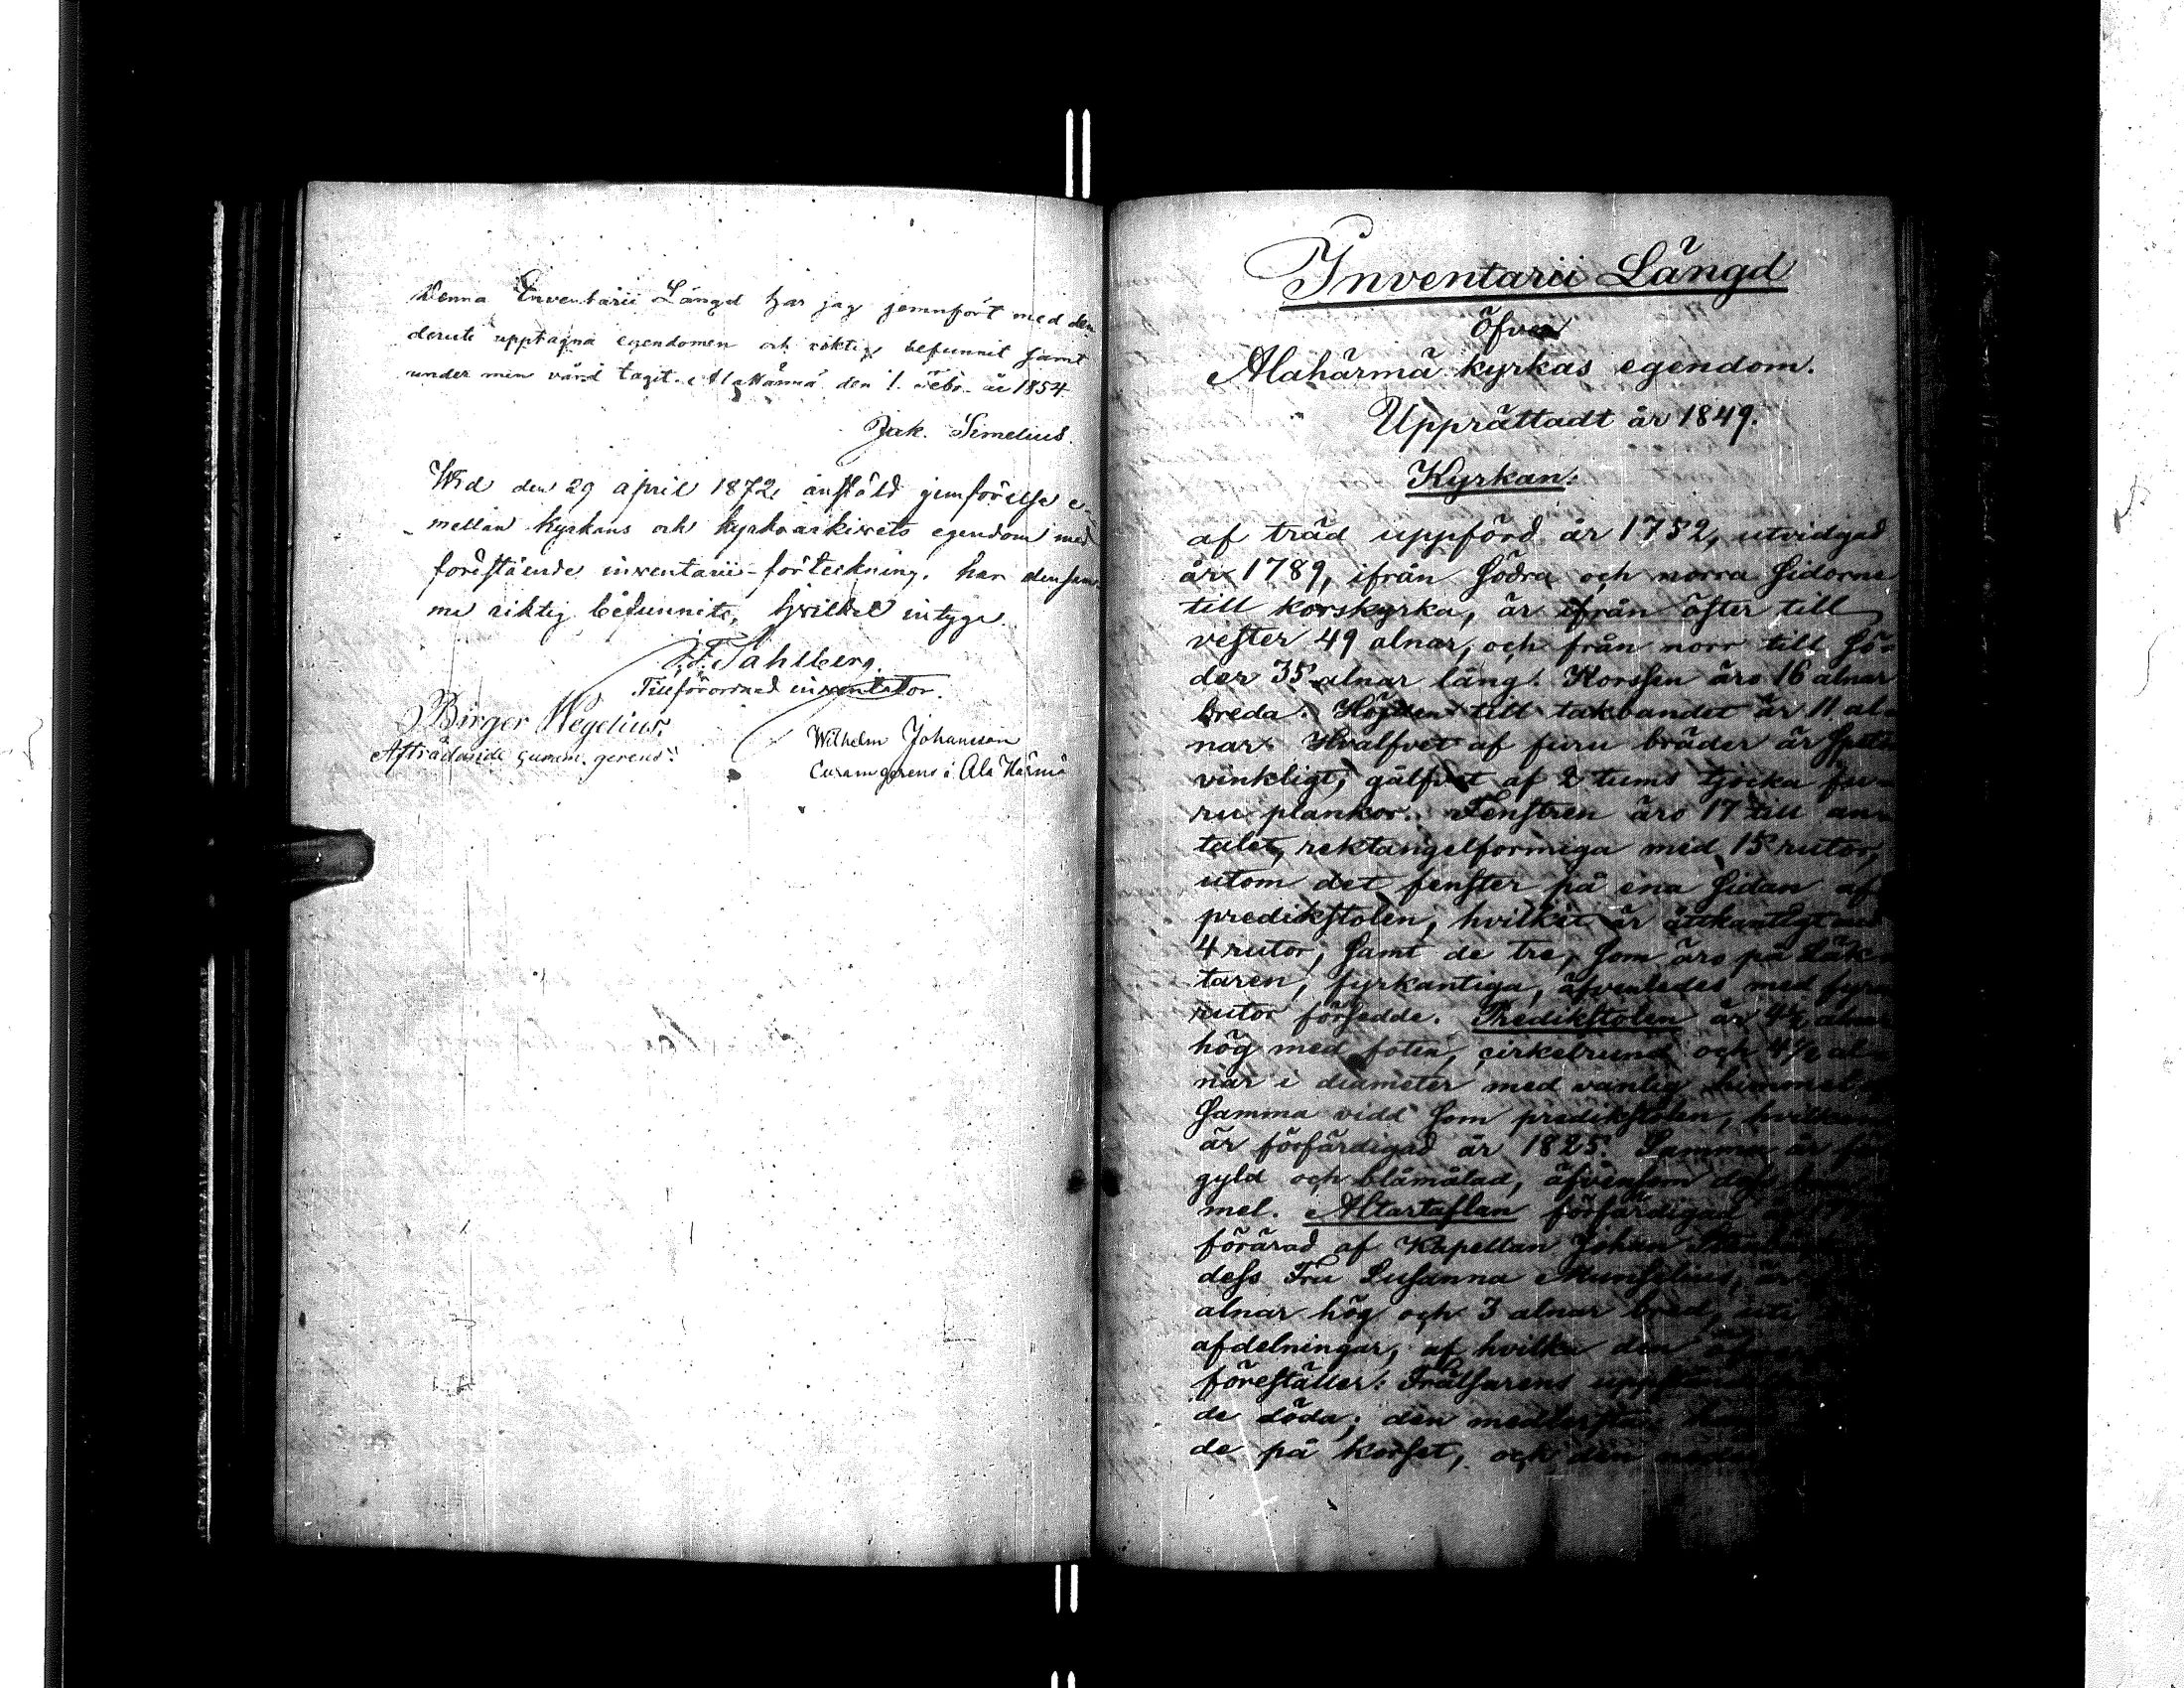 Denna Inventarii Längd har jag jemnfört med den
deruti upptagna egendomen och riktig befunnit samt
under min vård tagit. Alahärmä den 1. Febr. år 1854.
Jak. Simelius.
Wid den 29 april 1872, anstäld jemförelse e-
mellan kyrkans och kyrkoarkivets egendom med
förestående inventarii-förteckning, har densam-
ma riktig befunnits, hvilket intyga
F. Sahlberg.
Tillförordnad inventator.
Birger Wegelius.
Afträdande curam. gerens.
Wilhelm Johansson
Curam gerens i Ala Härmä
Inventarii Längd
öfver
Alahärmä kyrkas egendom.
Upprättadt år 1849.
Kyrkan:
af träd uppförd år 1752, utvidgad
år 1789, ifrån södra och norra sidorne
till korskyrka, är ifrån öster till
vester 49 alnar, och från norr till sö-
der 35 alnar lång. Korssen äro 16 alnar
breda. Höjden till takbandet är 11 al-
nar. Hvalfvet af furu bräder är
vinkligt, gålfvet af 2 tums tjocka fu-
ru plankor. Fenstren äro 17 till an-
talet, rektangelformiga med 15 rutor,
utom det fenster på ena sidan af
predikstolen, hvilket är åttkantigt med
4 rutor, samt de tre, som äro på Läk-
taren, fyrkantiga, äfvenledes med fyra
rutor försedde. Predikstolen är 4½ alnar
hög med foten, cirkelrund och 4½ al-
nar i diameter med vanlig himmel
samma vidd som predikstolen, hvilken
är förfärdigad år 1825. Samma är för-
gyld och blåmålad, äfvensom dess him-
mel. Altartaflan förfärdigad
förärad af Kapellan Johan
dess Fru Susanna Munselius, är
alnar hög och 3 alnar bred, uti
afdelningar, af hvilka den öfversta
föreställer: Frälsarens uppståndelse
de döda; den medlersta
de på korset, och den